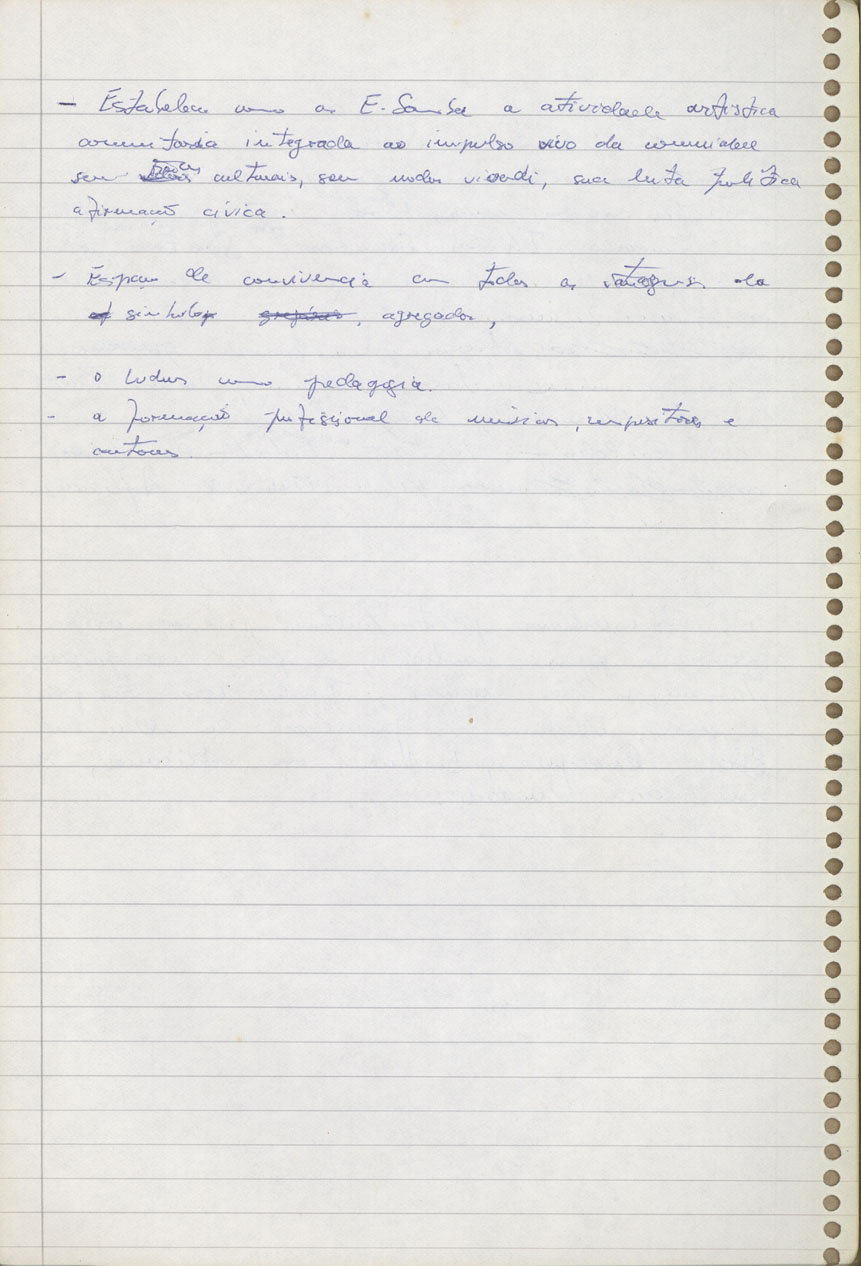 – Estabelecer como as E. Samba a atividade artística
comunitária integrada ao impulso vivo da comunidade
seus traços culturais, seu modus vivendi, sua luta política
afirmação cívica.
– Espaço de convivência com todas as da
simbolo, agregador,
– o ludus como pedagogia.
– a formação profissional de músicos, compositores e
cantores.